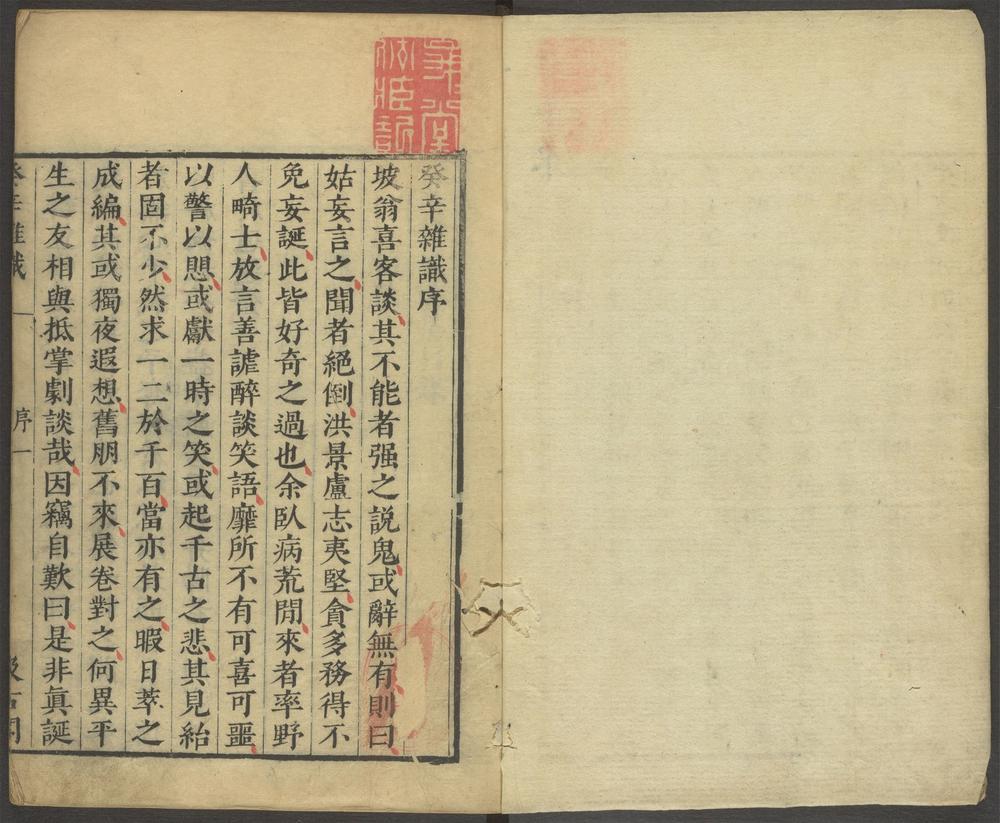 癸辛雜識序
坡翁喜客談其不能者强之說鬼或辭無有則曰
姑妄言之聞者絕倒洪景盧志夷堅貪多務得不
免妄誕此皆好奇之過也余臥病荒閒來者率野
人畸士放言善謔醉談笑語靡所不有可喜可噩
以警以愳或獻一時之笑或起千古之悲其見紿
者固不少然求一二於千百當亦有之暇日萃之
成編其或獨夜遐想舊朋不來展卷對之何異平
生之友相與抵掌劇談哉因竊自歎曰是非眞誕
癸辛雜識 序 一 汲古閣